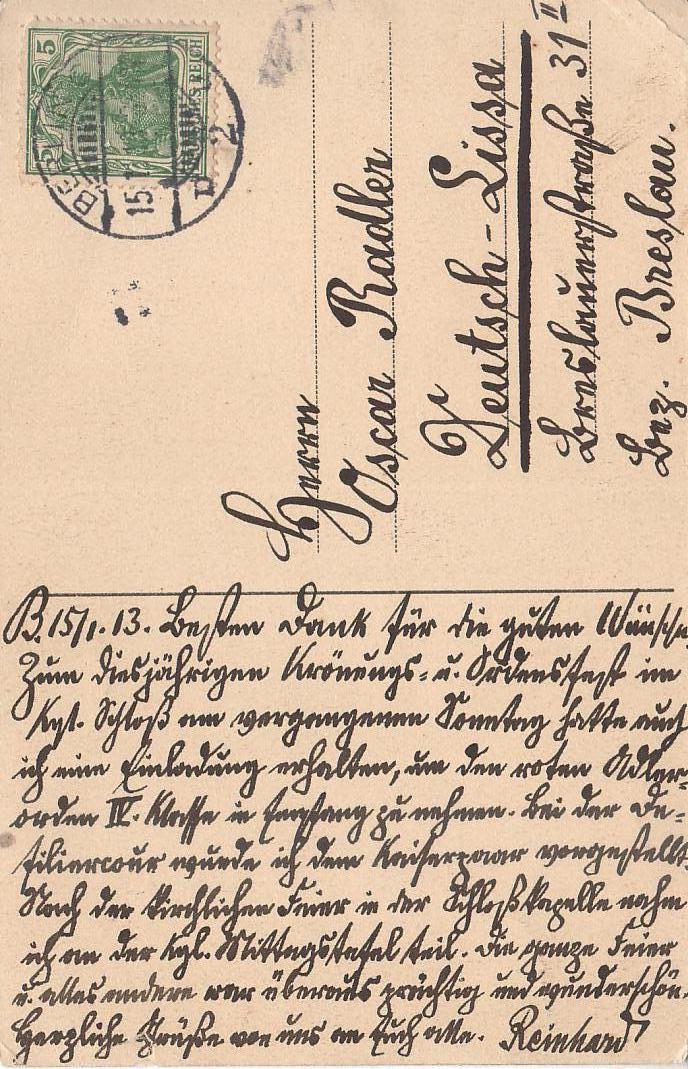 5
REICH
BER
15
2
Herrn
Oscar Radler
Deutsch-Lissa
Breslauerstraße 31 II
Bez. Breslau.
B. 15/1. 13. Besten Dank für die guten Wünsche
Zum diesjährigen Krönungs- u. Ordensfest im
Kgl. Schloß am vergangenen Sonntag hatte auch
ich eine Einladung erhalten, um den roten Adler-
orden IV. Klasse in Empfang zu nehmen. Bei der De-
filiercour wurde ich dem Kaiserpaar vorgestellt.
Nach der kirchlichen Feier in der Schloßkapelle nahm
ich an der Kgl. Mittagstafel teil. Die ganze Feier
u. alles andere war überaus prächtig und wunderschön.
Herzliche Grüße von uns an Euch alle. Reinhard